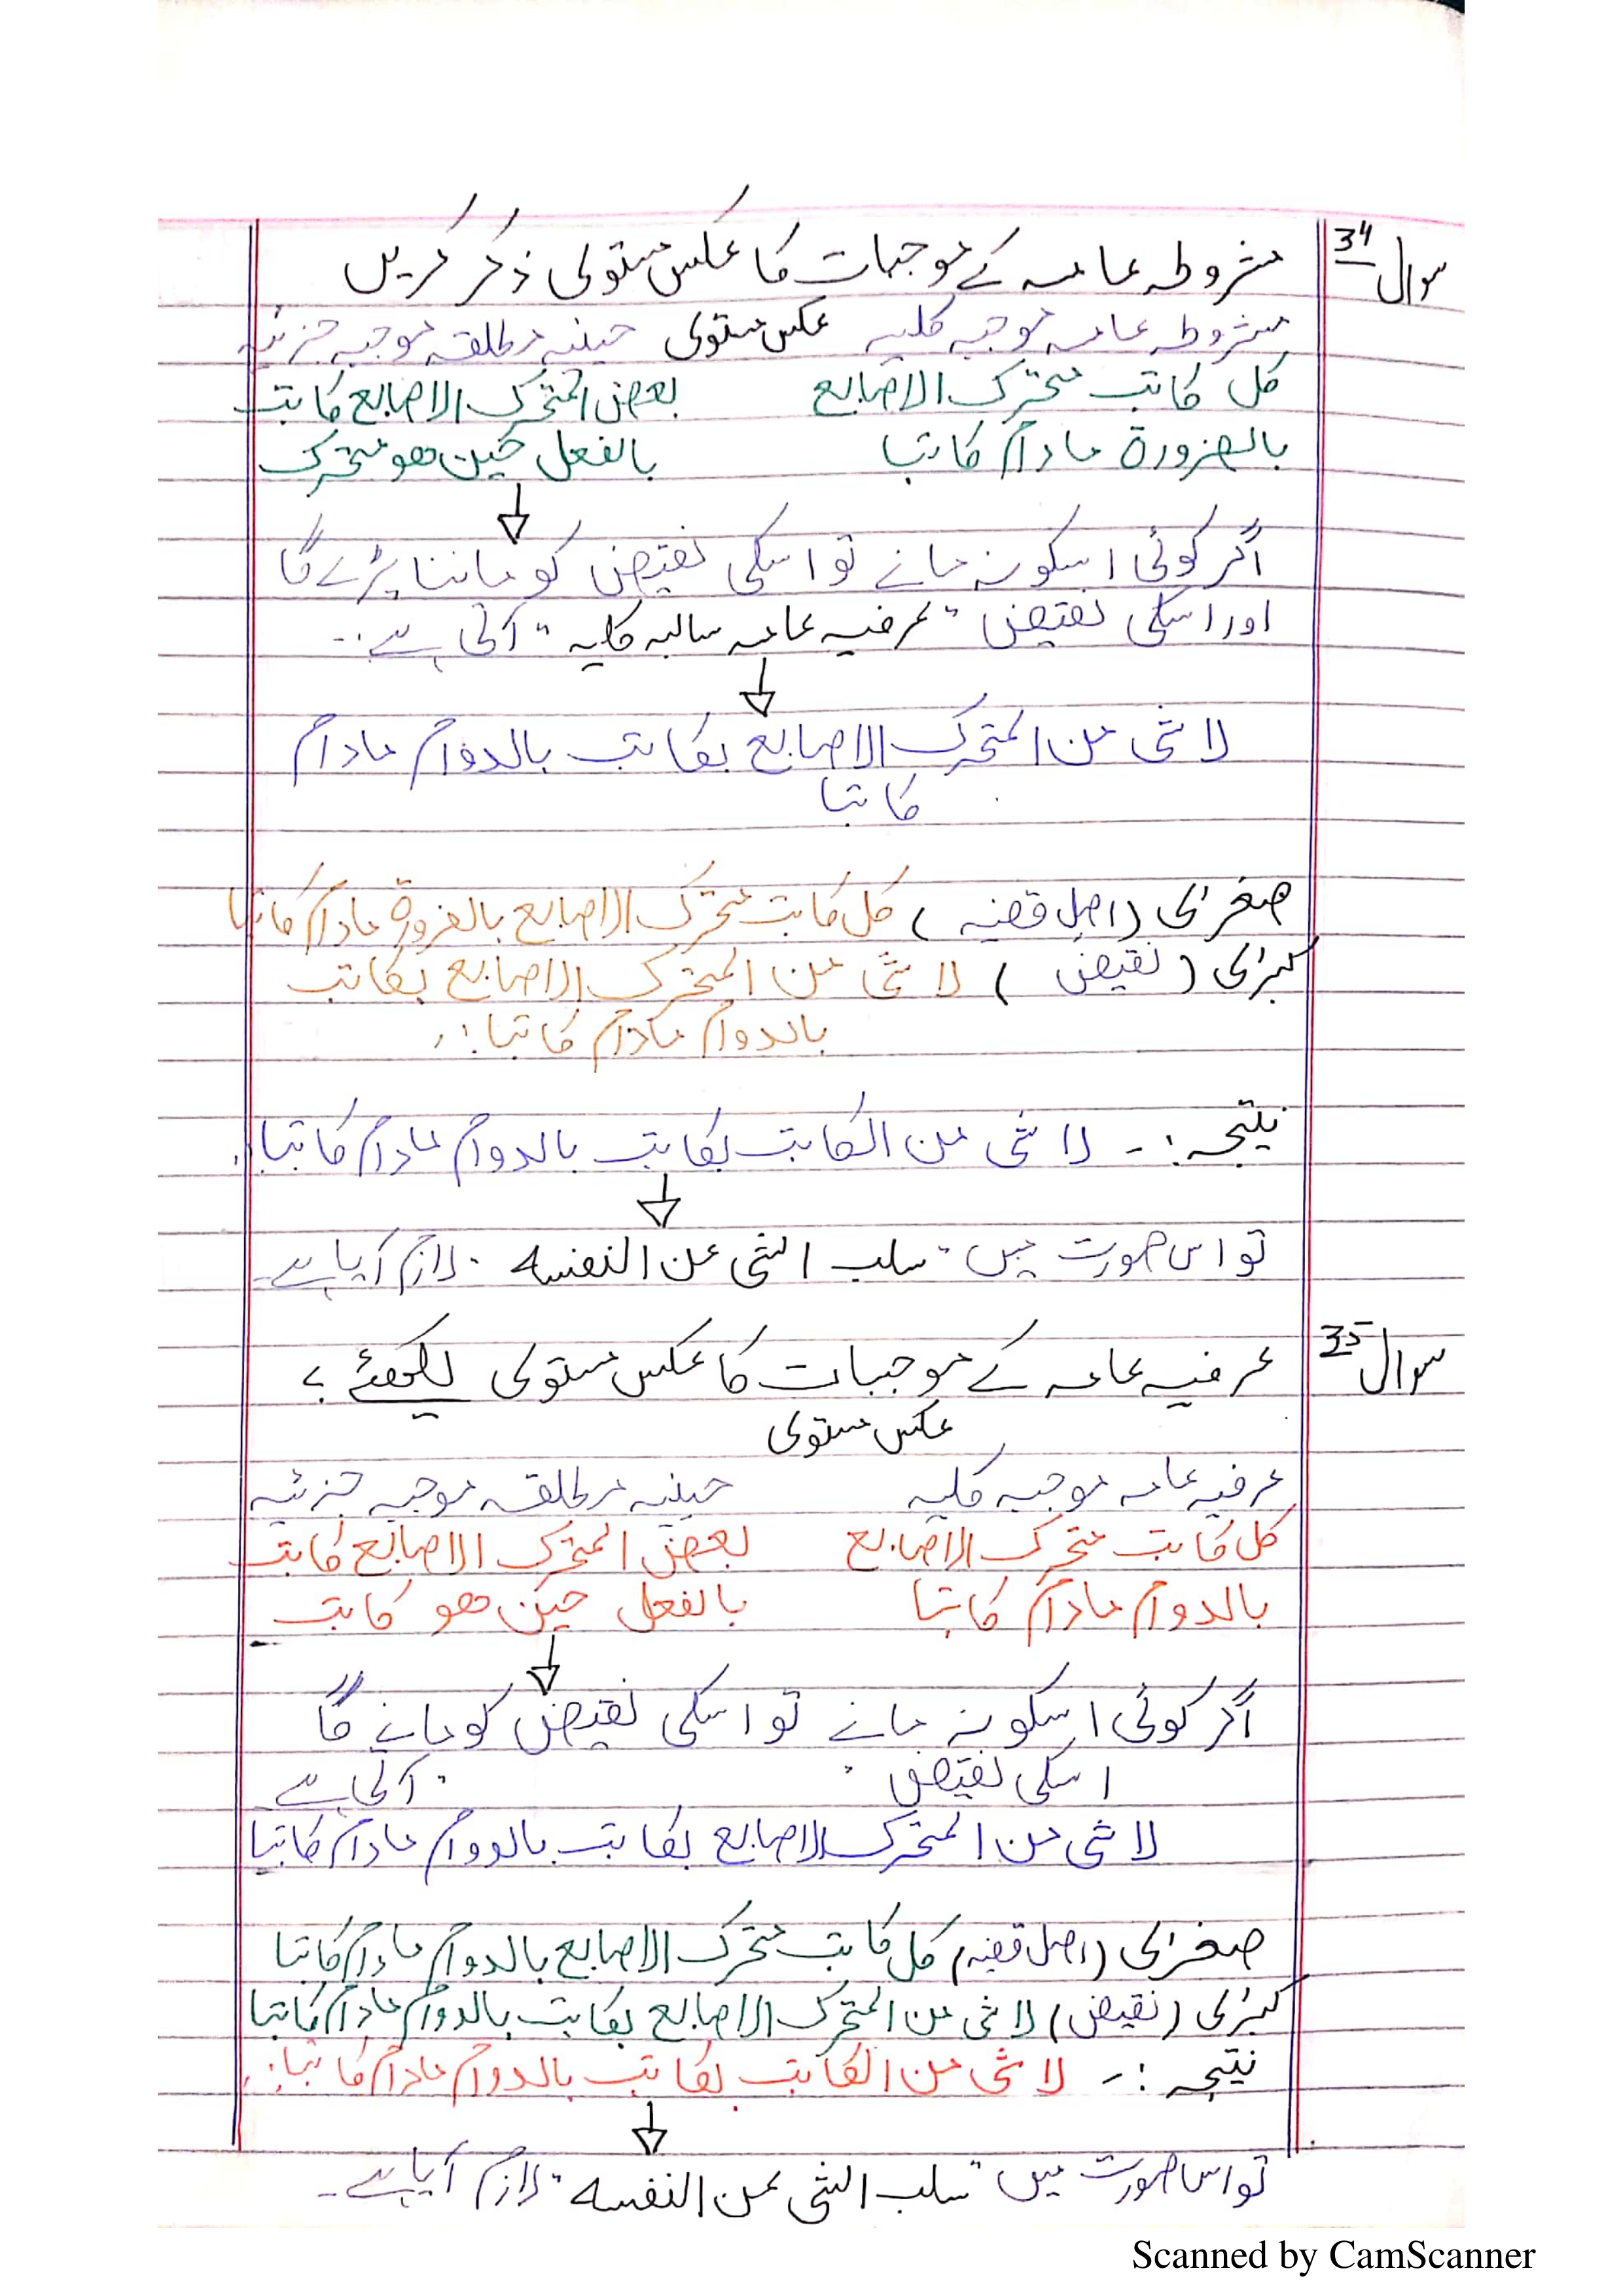 سوال 34 مشروطہ عامہ کے موجبات کا عکس مستوی ذکر کریں
مشروطہ عامہ موجبہ کلیہ عکس مستوی حینیہ مطلقہ موجبہ جزئیہ
کل کاتب متحرک الاصابع بعض المتحرک الاصابع کاتب
بالضرورة مادام کاتبا بالفعل حین ھو متحرک
اگر کوئی اسکو نہ مانے تو اسکی نقیض کو ماننا پڑے گا
اور اسکی نقیض "عرفیہ عامہ سالبہ کلیہ" آتی ہے :۔
لا شئ من المتحرک الاصابع بکاتب بالدوام مادام
کاتبا
صغرٰی (اصل قضیہ) کل کاتب متحرک الاصابع بالضرورة مادام کاتبا
کبرٰی (نقیض) لا شئ من المتحرک الاصابع بکاتب
بالدوام مادام کاتبا :.
نتیجہ :۔ لا شئ من الکاتب بکاتب بالدوام مادام کاتبا.
تو اس صورت میں "سلب الشئ عن النفسہ" لازم آیا ہے۔
سوال 35 عرفیہ عامہ کے موجبات کا عکس مستوی لکھئے ؟
عکس مستوی
عرفیہ عامہ موجبہ کلیہ حینیہ مطلقہ موجبہ جزئیہ
کل کاتب متحرک الاصابع بعض المتحرک الاصابع کاتب
بالدوام مادام کاتبا بالفعل حین ھو کاتب
اگر کوئی اسکو نہ مانے تو اسکی نقیض کو مانے گا
اسکی نقیض " " آتی ہے
لا شئ من المتحرک الاصابع بکاتب بالدوام مادام کاتبا
صغرٰی (اصل قضیہ) کل کاتب متحرک الاصابع بالدوام مادام کاتبا
کبرٰی (نقیض) لا شئ من المتحرک الاصابع بکاتب بالدوام مادام کاتبا
نتیجہ :۔ لا شئ من الکاتب بکاتب بالدوام مادام کاتبا :.
تو اس صورت میں "سلب الشئ عن النفسہ" لازم آیا ہے۔
Scanned by CamScanner